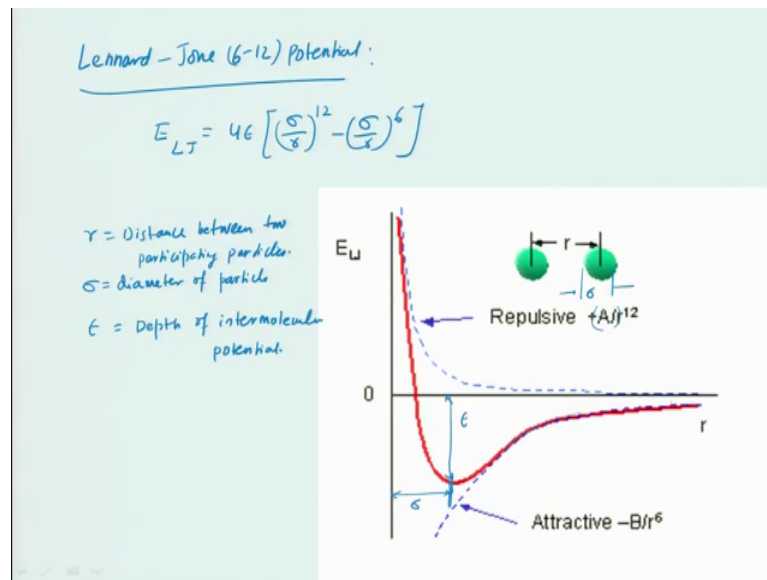 Lennard-Jone (6-12) Potential:
E_LJ = 4ϵ [(σ/r)^12 - (σ/r)^6]
r = Distance between two
participating particles.
σ = diameter of particle
ϵ = Depth of intermolecular
potential.
E_LJ
r
σ
Repulsive +(A)/r^12
0
r
ϵ
σ
Attractive –B/r^6